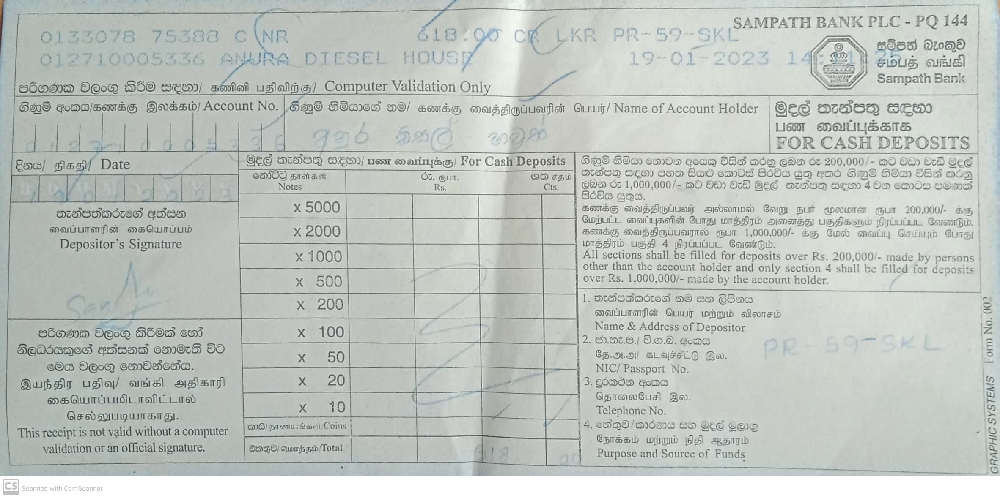 SAMPATH BANK PLC - PQ 144
0133078 75388 C NR 618.00 CR LKR PR-59-SKL
012710005336 ANURA DIESEL HOUSE 19-01-2023
සම්පත් බැංකුව
சம்பத் வங்கி
Sampath Bank
පරිගණක වලංගු කිරීම් සඳහා/ கணினி பதிவிற்கு/ Computer Validation Only
ගිණුම් අංකය/கணக்கு இலக்கம்/ Account No.
ගිණුම් හිමියාගේ නම/ கணக்கு வைத்திருப்பவரின் பெயர்/ Name of Account Holder
මුදල් තැන්පතු සඳහා
பண வைப்புக்காக
FOR CASH DEPOSITS
දිනය/ திகதி/ Date
මුදල් තැන්පතු සඳහා/ பண வைப்புக்கு/ For Cash Deposits
නෝට්ටු/ தாள்கள்
Notes
රු. ரூபா.
Rs.
ශත சதம்
Cts.
x 5000
x 2000
x 1000
x 500
x 200
x 100
x 50
x 20
x 10
කාසි/நாணயங்கள்/Coins
එකතුව/மொத்தம்/Total
618 00
තැන්පත්කරුගේ අත්සන
வைப்பாளரின் கையொப்பம்
Depositor's Signature
පරිගණක වලංගු කිරීමක් හෝ
නිලධරයකුගේ අත්සනක් නොමැති විට
මෙය වලංගු නොවන්නේය.
இயந்திர பதிவு/ வங்கி அதிகாரி
கையொப்பமிடாவிட்டால்
செல்லுபடியாகாது.
This receipt is not valid without a computer
validation or an official signature.
ගිණුම් හිමියා නොවන අයෙකු විසින් කරනු ලබන රු 200,000/- කට වඩා වැඩි මුදල්
තැන්පතු සඳහා පහත සියළු කොටස් පිරවිය යුතු අතර ගිණුම් හිමියා විසින් කරනු
ලබන රු 1,000,000/- කට වඩා වැඩි මුදල් තැන්පතු සඳහා 4 වන කොටස පමණක්
පිරවිය යුතුය.
கணக்கு வைத்திருப்பவர் அல்லாமல் வேறு நபர் மூலமான ரூபா 200,000/- க்கு
மேற்பட்ட வைப்புகளின் போது மாத்திரம் அனைத்து பகுதிகளும் நிரப்பப்பட வேண்டும்.
கணக்கு வைத்திருப்பவரால் ரூபா 1,000,000/- க்கு மேல் வைப்பு செய்யும் போது
மாத்திரம் பகுதி 4 நிரப்பப்பட வேண்டும்.
All sections shall be filled for deposits over Rs. 200,000/- made by persons
other than the account holder and only section 4 shall be filled for deposits
over Rs. 1,000,000/- made by the account holder.
1. තැන්පත්කරුගේ නම සහ ලිපිනය
வைப்பாளரின் பெயர் மற்றும் விலாசம்
Name & Address of Depositor
2. ජා.හැ.ප./ වි.ග.බ. අංකය
தே.அ.அ/ கடவுச்சீட்டு இல.
NIC/ Passport No.
PR 59-SKL
3. දුරකථන අංකය
தொலைபேசி இல.
Telephone No.
4. හේතුව/කාරණය සහ මුදල් මූලාශ්‍ර
நோக்கம் மற்றும் நிதி ஆதாரம்
Purpose and Source of Funds
GRAPHIC SYSTEMS Form No. 002
CS Scanned with CamScanner